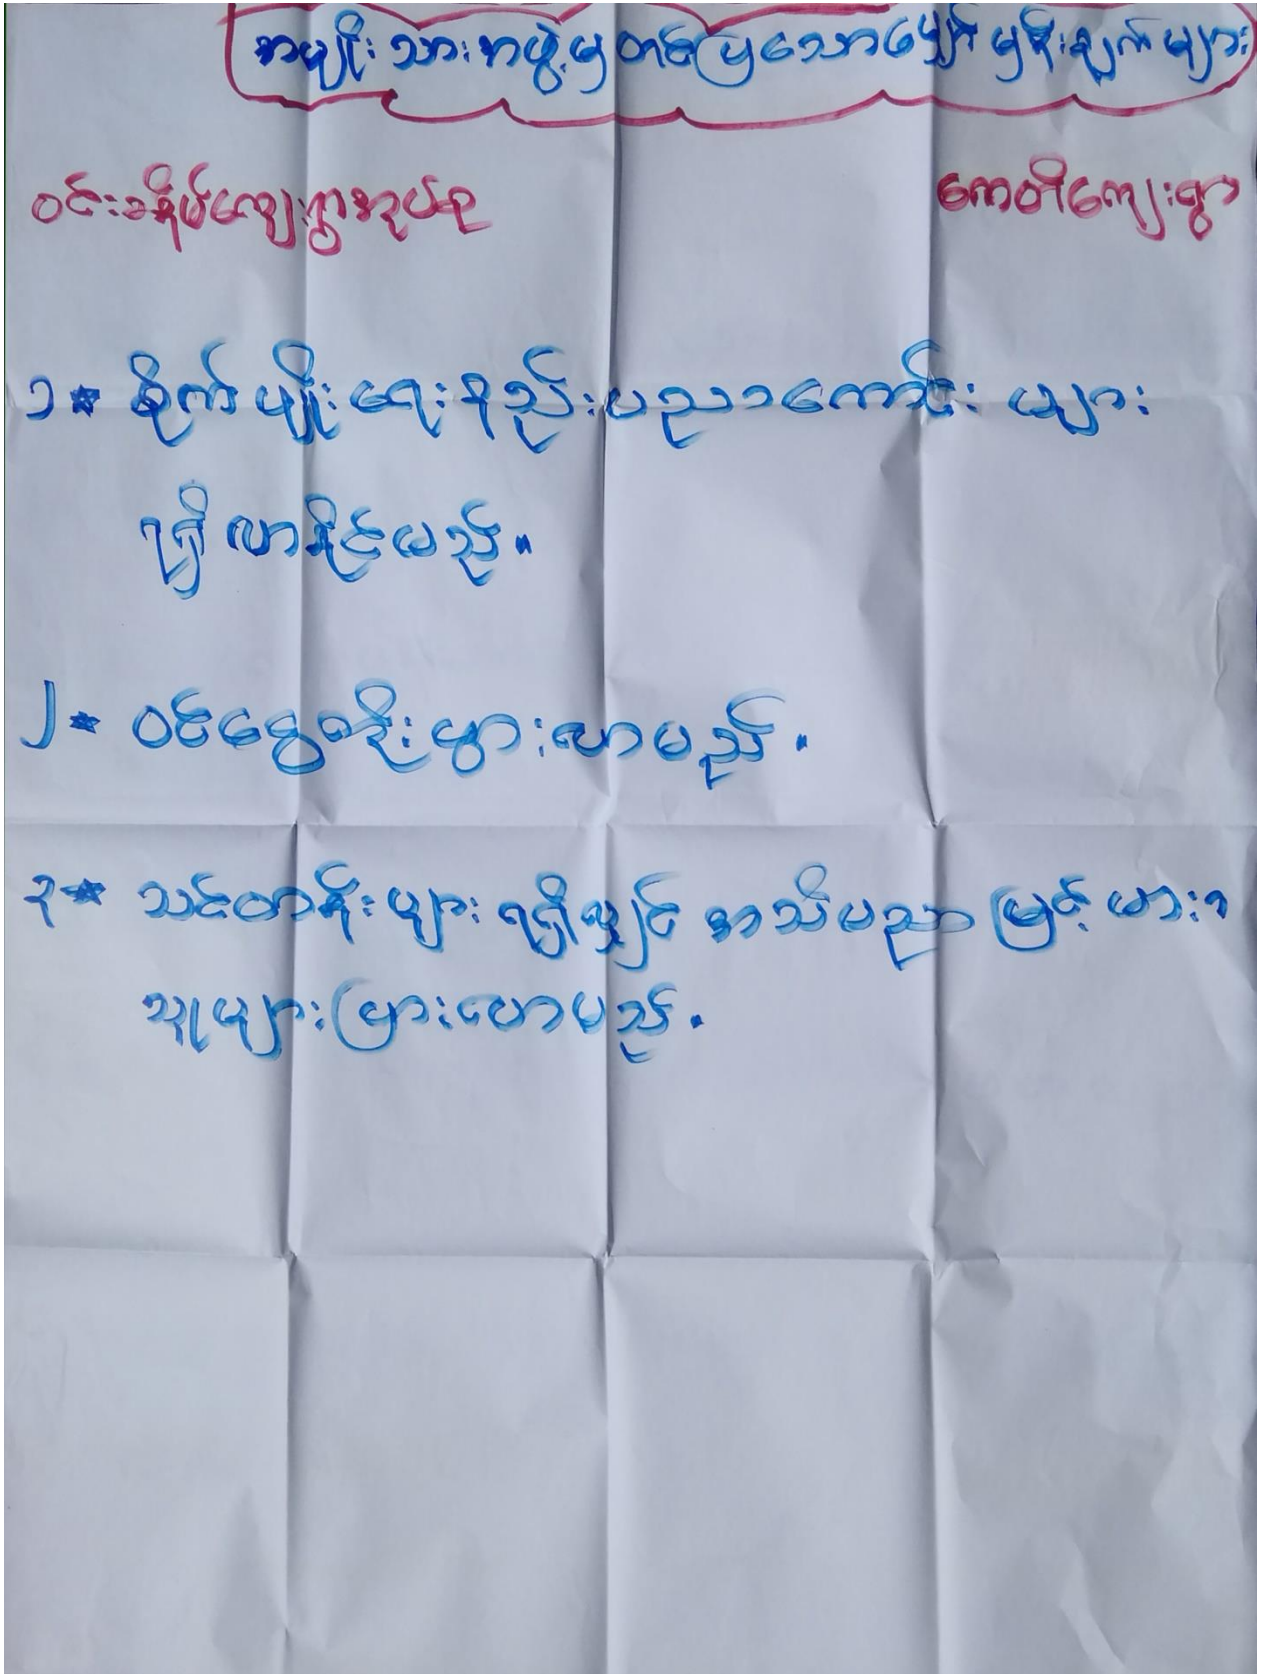 အမျိုးသားအဖွဲ့မှတင်ပြသောမျှော်မှန်းချက်များ
ဝင်းခနိမ်ကျေးရွာအုပ်စု ကေတီကျေးရွာ
၁* စိုက်မျိုးရေးနည်းပညာကောင်းများ
ရရှိလာနိုင်မည်။
၂* ဝင်ငွေတိုးပွားလာမည်။
၃* သင်တန်းများရရှိလျှင် အသိပညာမြင့်မား၁
သူများပြားလာမည်။